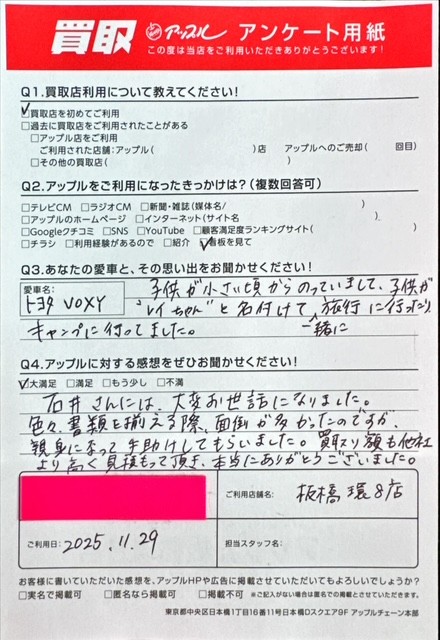 買取 アップル アンケート用紙
この度は当店をご利用いただきありがとうございます!
Q1.買取店利用について教えてください!
☑買取店を初めてご利用
□過去に買取店をご利用されたことがある
□アップル店をご利用
ご利用された店舗:アップル( )店 アップルへのご売却( 回目)
□その他の買取店( )
Q2.アップルをご利用になったきっかけは?(複数回答可)
□テレビCM □ラジオCM □新聞・雑誌(媒体名/ )
□アップルのホームページ □インターネット(サイト名 )
□Googleクチコミ □SNS □YouTube □顧客満足度ランキングサイト( )
□チラシ □利用経験があるので □紹介 ☑看板を見て
Q3.あなたの愛車と、その思い出をお聞かせください!
愛車名:
トヨタ VOXY
子供が小さい頃からのっていまして、子供が
"レイちゃん"と名付けて、旅行に行ったり
一緒に
キャンプに行ってました。
Q4.アップルに対する感想をぜひお聞かせください!
☑大満足 □満足 □もう少し □不満
石井さんには、大変お世話になりました。
色々、書類を揃える際、面倒が多かったのですが、
親身になって手助けしてもらいました。買取り額も他社
より高く見積もって頂き、本当にありがとうございました。
ご利用店舗名: 板橋環8店
ご利用日: 2025.11.29 担当スタッフ名:
お客様に書いていただいた感想を、アップルHPや広告に掲載させていただいてもよろしいでしょうか?
□実名で掲載可 □匿名なら掲載可 □掲載不可 ※ご記入がない場合は匿名での掲載とさせていただきます。
東京都中央区日本橋1丁目16番11号日本橋Dスクエア9F アップルチェーン本部